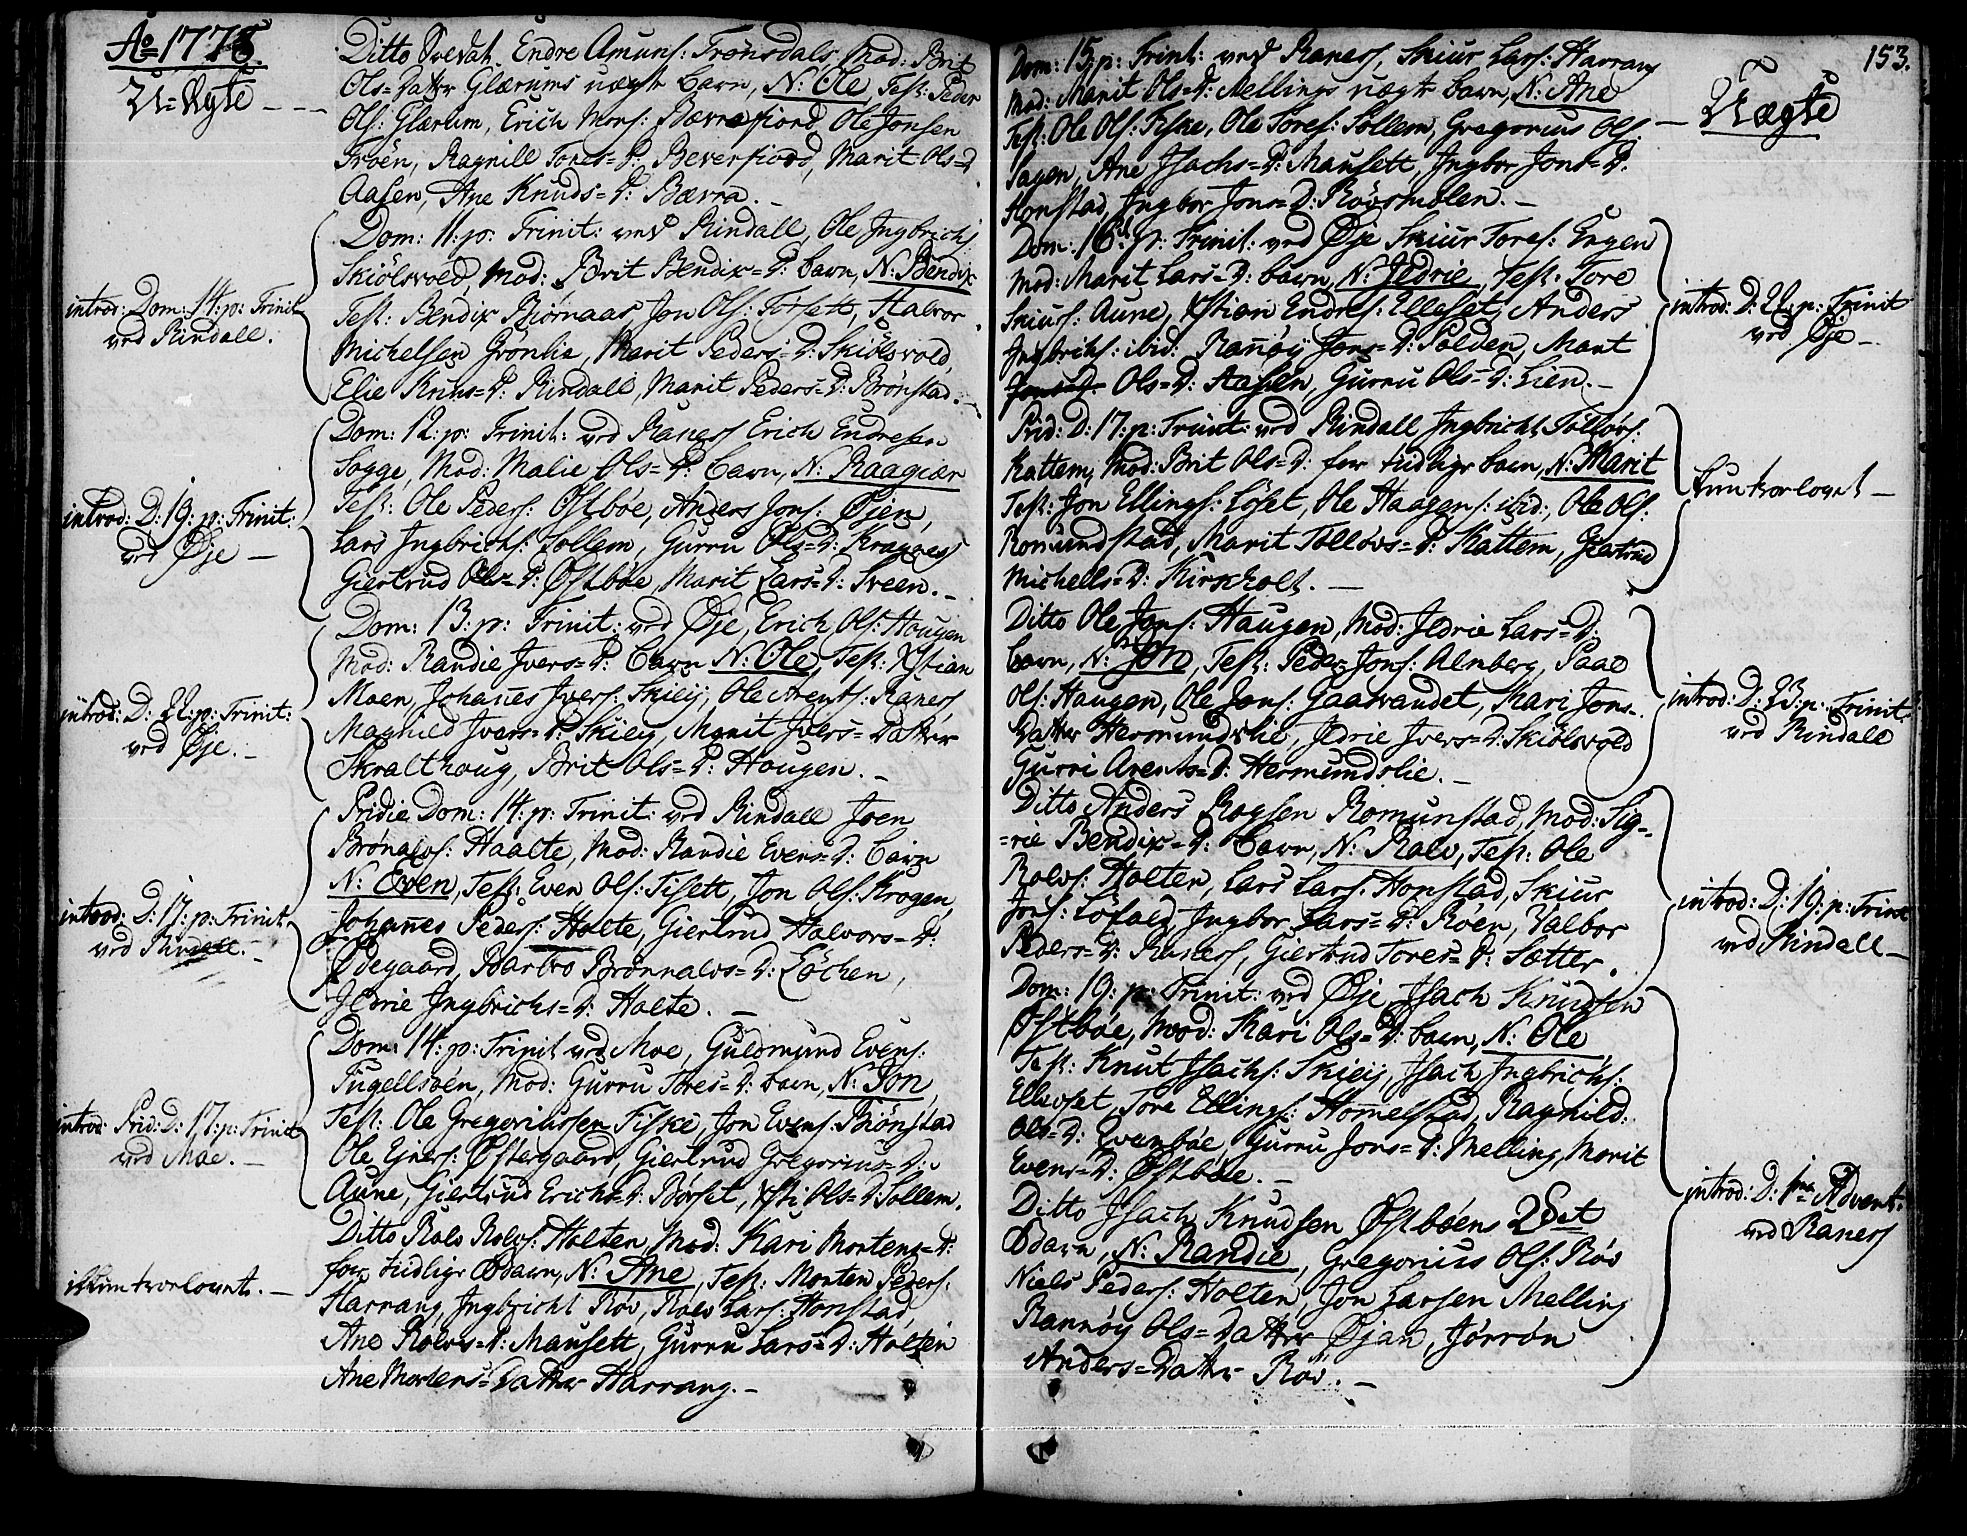 Ao 1778.
U-Ægte
Ditto Endre Amuns: Trønsdals, Mod: Brit
Ols=Datter Glærums uægte barn, N: Ole Test: Peder
Ols: Glærum, Erich Mons: Bæverfiord, Ole Jonsen
Troen, Ragnill Tores=D: Beverfiord, Marit Ols=D
Aasen, Ane Knuds=D: Bævra.
Dom: 11: p: Trinit: ved Rindall, Ole Ingbrichs:
Skiölsvold, Mod: Brit Bendix=D: barn, N: Bendix
Test: Bendix Biørnaas, Jon Ols: Fosett, Halvor
Michelsen Grønlie, Marit Peders=D: Skiölsvold,
Elie =D: Rindall, Marit Peders=D: Brønstad.
introd: Dom: 14: p: Trinit
ved Rindall.
Dom: 12: p: Trinit: ved Ranes Erich Endresen
Sogge, Mod: Malie Ols=D: barn, N: Raagiær
Test: Ole Peders: Østbøe, Anders Jons: Øjen,
Lars Ingbrichs: Sollem, Gurru Ols=D: Kragnes
Giertrud Ols=D: Østbøe, Marit Lars=D: Sveen.
introd: D: 19: p: Trinit:
ved Øje
Dom: 13: p: Trinit: ved Øje, Erich Ols: Hougen
Mod: Randie Ivers=D: barn N: Ole, Test: Xstian
Moen, Johanes Ivers: Skiej, Ole Arents: Ranes
Magnild Ivers=D: Skiej, Marit Ivers=Datter
Skralthoug, Brit Ols=D: Hougen.
introd: D: 22: p: Trinit:
ved Øje.
Pridie Dom: 14: p: Trinit: ved Rindall Joen
Brønalvs: Haalte, Mod: Randie Evens=D: barn
N: Even, Test: Even Ols: Fisett, Jon Ols: Krogen,
Johanes Peders: Holte, Giertrud Halvors=D:
Ødegaard, Barbro Brønnalvs=D: Løchen,
Jldrie Ingbrichs=D: Halte.
introd: D: 17: p: Trinit.
ved Rindall.
Dom: 14: p: Trinit ved Moe, Guldmund Evens:
Fugellsøen, Mod: Gurru Tores=D: barn, N: Jon,
Test: Ole Gregoriussen Fiske, Jon Evens: Brønstad
Ole Ejners: Østergaard, Giertrud Gregorius=D:
Aune, Giertrud Erichs=D: Børset, Xsti Ols=D: Sollem.
introd: Prid: D: 17: p: Trinit
ved Moe.
Ditto Rolv Rolvs: Holten, Mod: Kari Mortens=D:
for tidlige barn, N: Ane, Test: Morten Peders:
Harrang, Ingbricht Røv, Rolv Lars: Honstad,
Ane Rolvs=D: Mausett, Gurru Lars=D: Holten
Ane Mortens=Datter Harrang.
153.
Uægte
Dom: 15: p: Trinit: ved Ranes, Skiur Lars: Harrang
Mod: Marit Ols=D: Mellings uægte barn, N: Ane
Test: Ole Ols: Fiske, Ole Tores: Sollem, Gregorius Ols:
Sagen, Ane Isachs=D: Mausett, Ingbor Jons=D:
Honstad, Ingbor Jons=D: Røvsmolen.
Dom: 16: p: Trinit: ved Øje Skiur Tores: Engen
Mod: Marit Lars=D: barn, N: Jldrie, Test: Tore
Skiurs: Aune, Xstian Endres: Elleset, Anders
Ingbrichs: ibid: Ranøy Jons=D: Polden, Marit
Ols=D: Aasen, Gurru Ols=D: Lien.
introd: D: 22: p: Trinit
ved Øje
Prid: D: 17: p: Trinit: ved Rindall Ingbricht Tolløvs:
Kattem, Mod: Brit Ols=D: for tidlige barn, N: Marit
Test: Jon Ellings: Løset, Ole Haagens: ibid:, Ole Ols:
Romundstad, Marit Tolløvs=D: Kattem, Giertrud
Michells=D: Kirkholt.
Ditto Ole Jons: Haugen, Mod: Jldrie Lars=D:
barn, N: Jon, Test: Peder Jons: Alnberg, Paal
Ols: Haugen, Ole Jons: Gaasvandet, Kari Jons-
Datter Hermundslie, Jldrie Ivers=D: Skiölsvold
Gurri Arents=D: Hermundslie.
introd: D: 23: p: Trinit
ved Rindall
Ditto Anders Romunstad, Mod: Sig-
=rie Bendix=D: barn, N: Rolv, Test: Ole
Rolvs: Holten, Lars Lars: Honstad, Skiur
Jons: Løfald, Ingbor Lars=D: Røen, Valbor
Peders=D: Ranes, Giertrud Tores=D: Sætter.
introd: D: 19: p: Trinit
ved Rindall
Dom: 19: p: Trinit: ved Øje Isach Knudsen
Østbøe, Mod: Kari Ols=D: barn, N: Ole
Test: Knut Isachs: Skiej, Isach Ingbrichs:
Ellevset, Tore Ellings: Homelstad, Ragnild
Ols=D: Evenbøe, Gurru Jons=D: Melling, Marit
Evens=D: Østbøe.
Ditto Isach Knudsen Østbøens 2det
barn, N: Randie, Gregorius Ols: Røv
Niels Peders: Holten, Jon Larsen Melling
Rannøy Ols=Datter Øjan, Jørrøn
Anders=Datter Røv.
introd: D: 1ma Advent:
ved Ranes